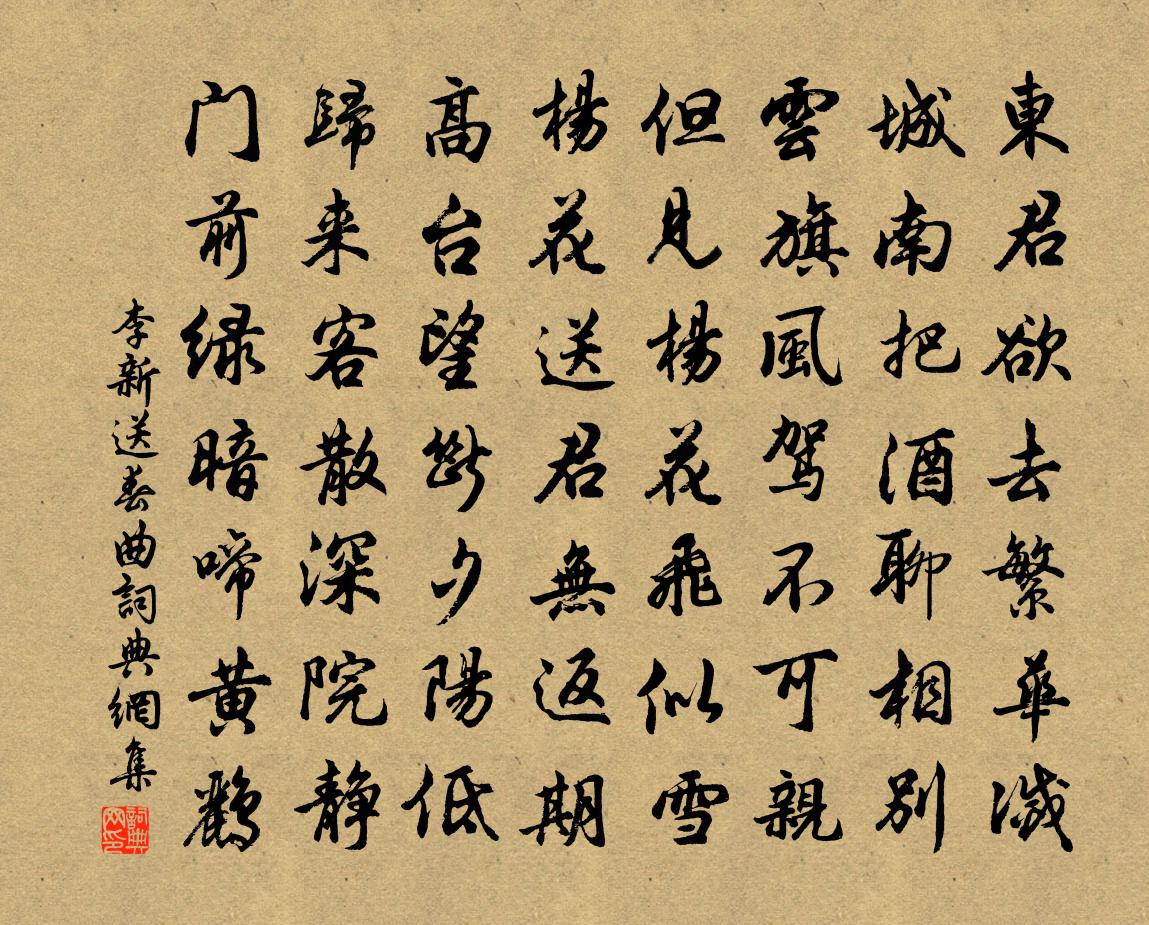 東君欲去繁華滅
城南把酒聊相別
雲旗風駕不可親
但見楊花飛似雪
楊花送君無返期
高台望斷夕陽低
歸来客散深院静
门前绿暗啼黄鸝
李新送春曲詞典網集
詞典网印